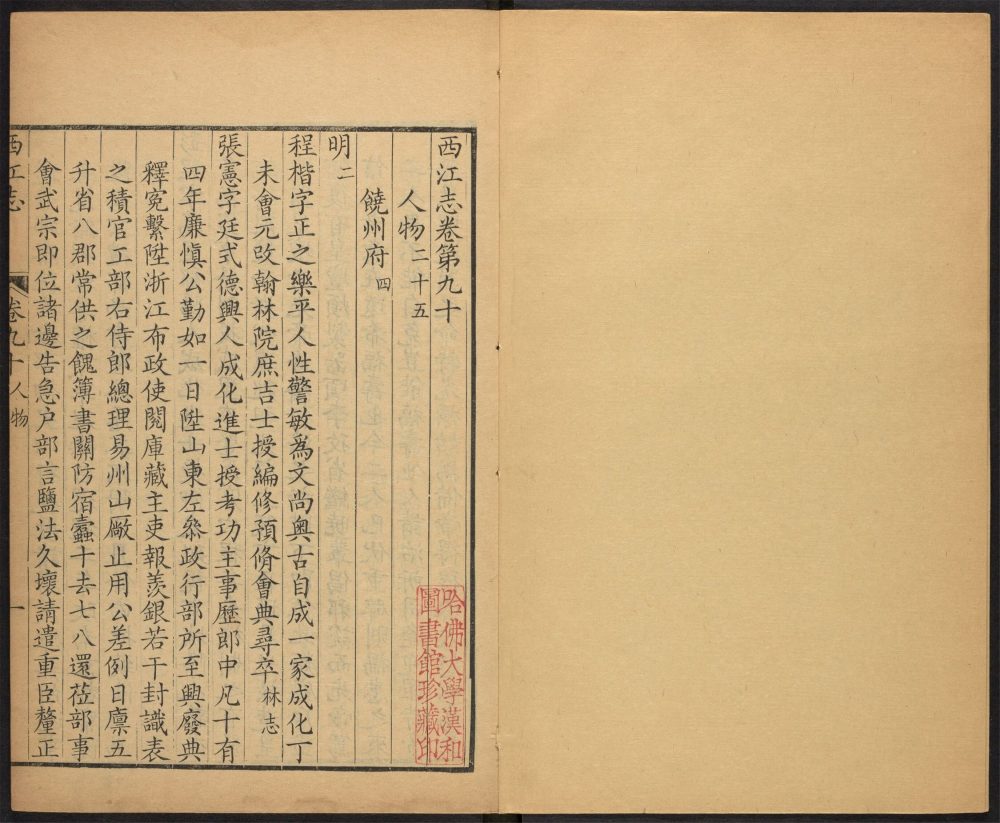 西江志卷第九十
人物二十五
饒州府四
明二
程楷字正之樂平人性警敏爲文尚奧古自成一家成化丁
未會元改翰林院庶吉士授編修預脩會典尋卒林志
張憲字廷式德興人成化進士授考功主事歷郎中凡十有
四年廉愼公勤如一日陞山東左叅政行部所至興廢典
釋寃繫陞浙江布政使閱庫藏主吏報羨銀若干封識表
之積官工部右侍郎總理易州山厰止用公差例日廪五
升省八郡常供之餽簿書關防宿蠧十去七八還莅部事
會武宗即位諸邊告急户部言鹽法久壞請遣重臣釐正
西江志
卷九十 人物
一
哈佛大學漢和
圖書館珍藏印